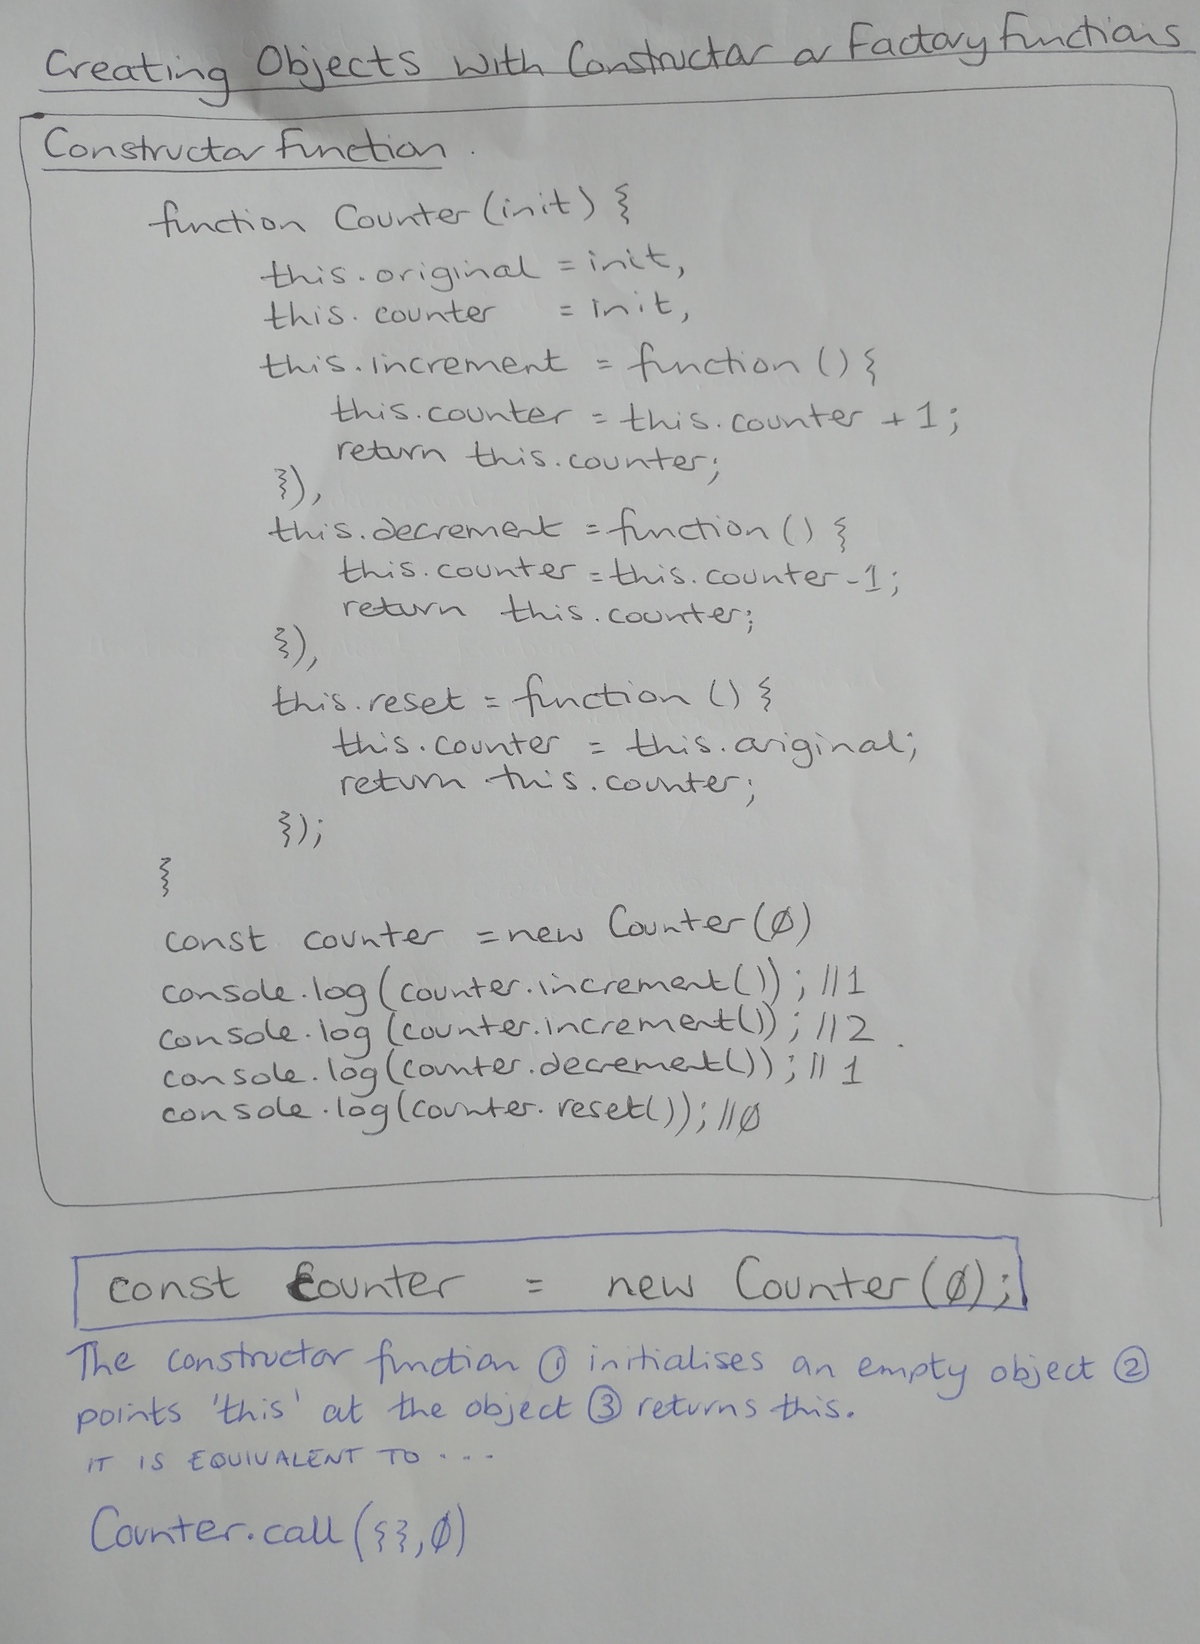 Creating Objects with Constructor or Factory functions
Constructor function.
function Counter (init) {
this.original = init,
this.counter = init,
this.increment = function () {
this.counter = this.counter + 1;
return this.counter;
}),
this.decrement = function () {
this.counter = this.counter - 1;
return this.counter;
}),
this.reset = function () {
this.counter = this.original;
return this.counter;
});
}
const counter = new Counter (0)
console.log (counter.increment()); //1
console.log (counter.increment()); //2
console.log (counter.decrement()); //1
console.log (counter.reset()); //0
const counter = new Counter (0);
The constructor function ① initialises an empty object ②
points 'this' at the object ③ returns this.
IT IS EQUIVALENT TO ....
Counter.call ({}, 0)